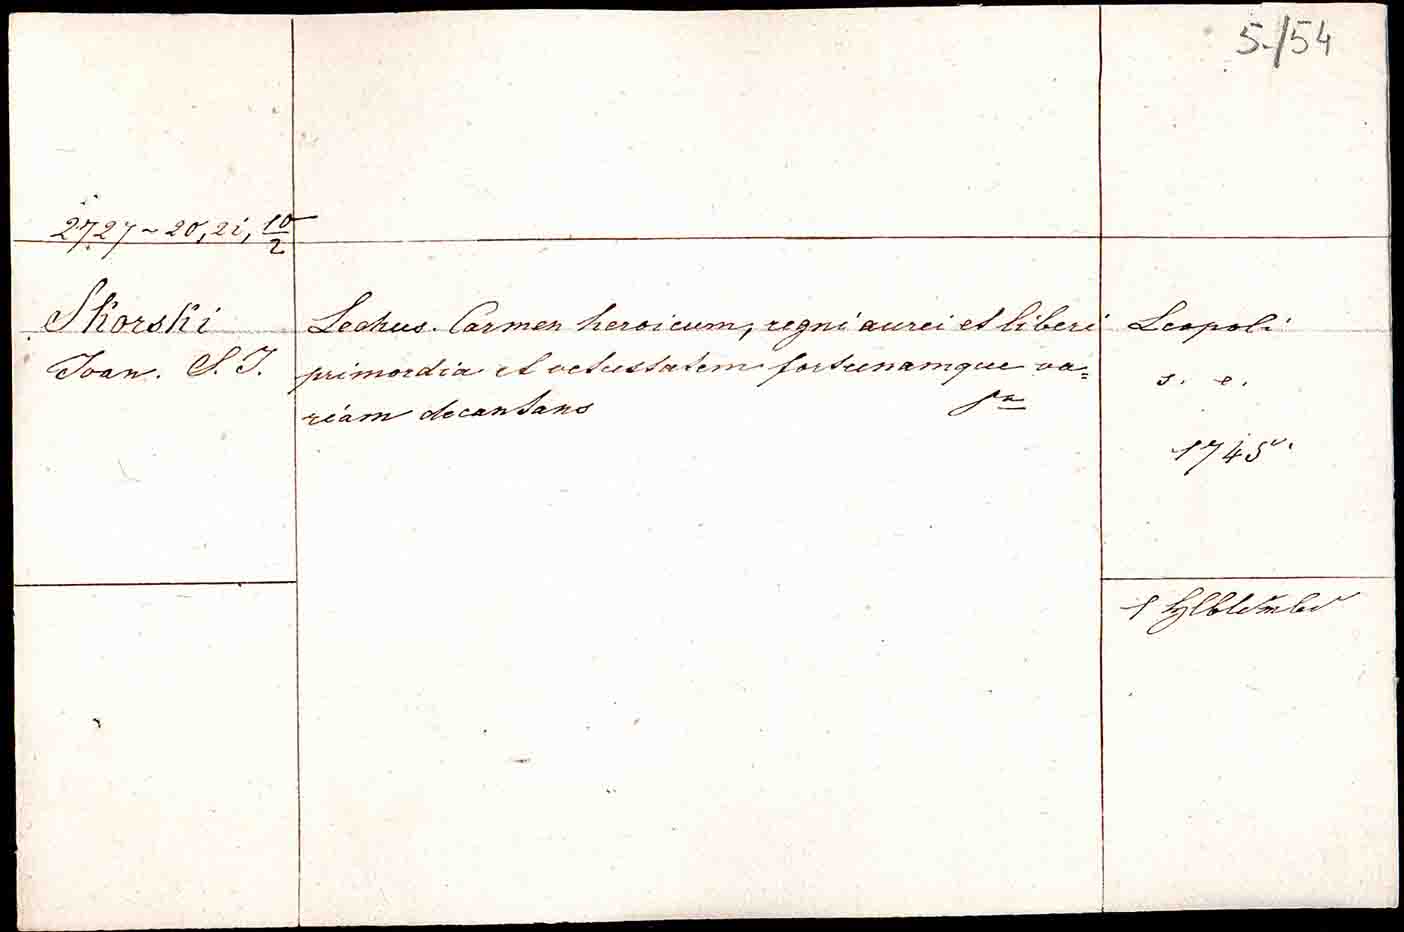 5./54
2727 ~ 20, 21, 10/2
Skorski
Joan. S. J.
Lechus. Carmen heroicum, regni aurei et liberi
primordia et vetustatem fortunamque va=
riam decantans
Leopoli
s. e.
1745.
1